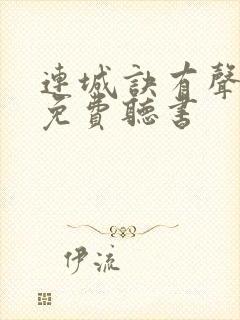 連城訣有聲
免費聽書
伊流